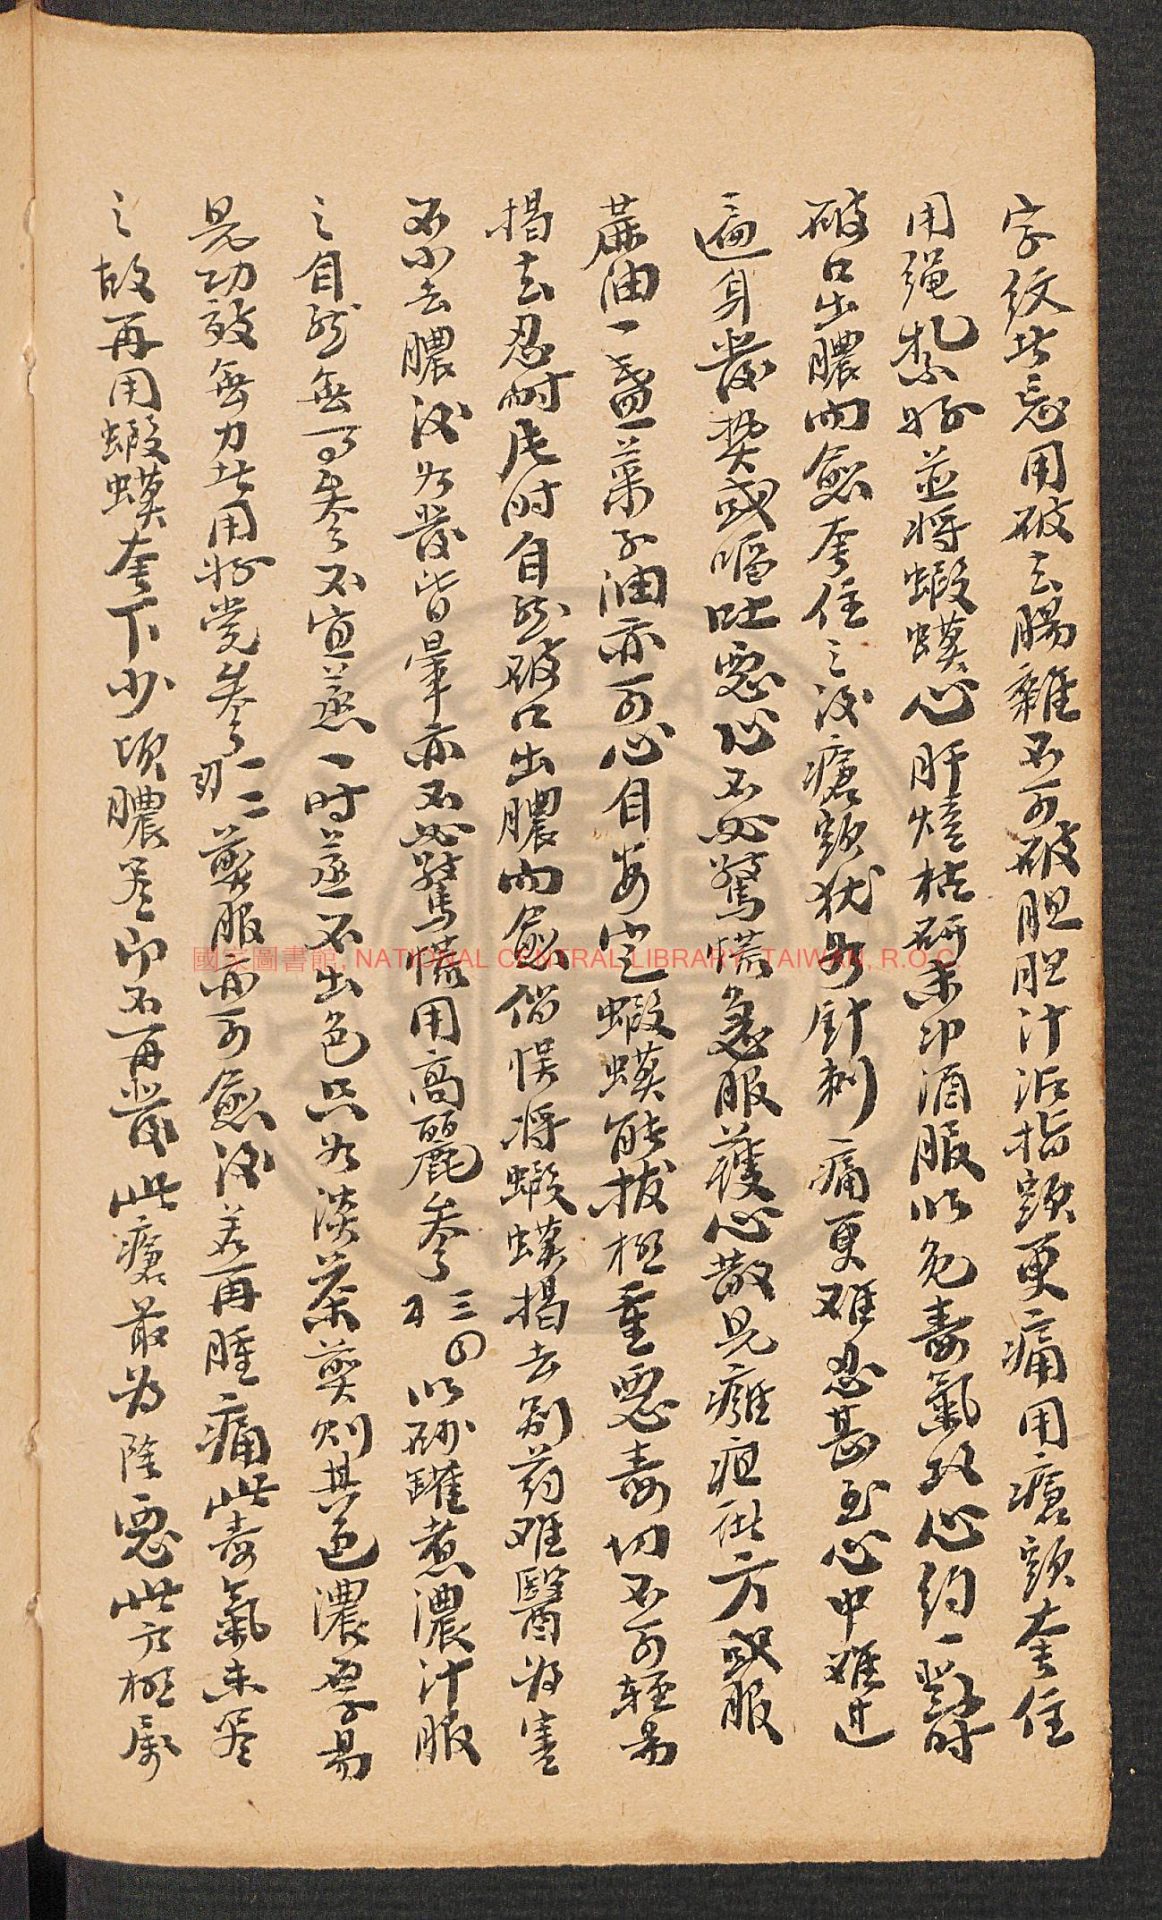 字紋者忌用破去腸雜不可破胆胆汁沾指頭更痛用瘡頭套住
用繩紮好並將蝦蟆心肝燒枯研末冲酒服以免毒氣攻心約一對時
破口出膿而愈套住之後瘡頭猶如針刺痛更难忍甚至心中难过
遍身發燒或嘔吐惡心不必驚慌急服護心散見癰疽雜方或服
蔴油一盞菜子油亦可心自安定蝦蟆能拔極重惡毒切不可輕易
揭去忍耐片时自然破口出膿而愈倘悮将蝦蟆揭去别药难醫为害
不小去膿後如發昏暈亦不必驚慌用高麗參三四錢以砂罐煮濃汁服
之自然無事參不宜蒸一时蒸不出色只如淡茶煎則其色濃厚易
見功效無力者用好党參一二两煎服亦可愈後若再腫痛此毒氣未尽
之故再用蝦蟆套下少頃膿尽即不再發此瘡最为险惡此方極属
國家圖書館, NATIONAL CENTRAL LIBRARY, TAIWAN, R.O.C